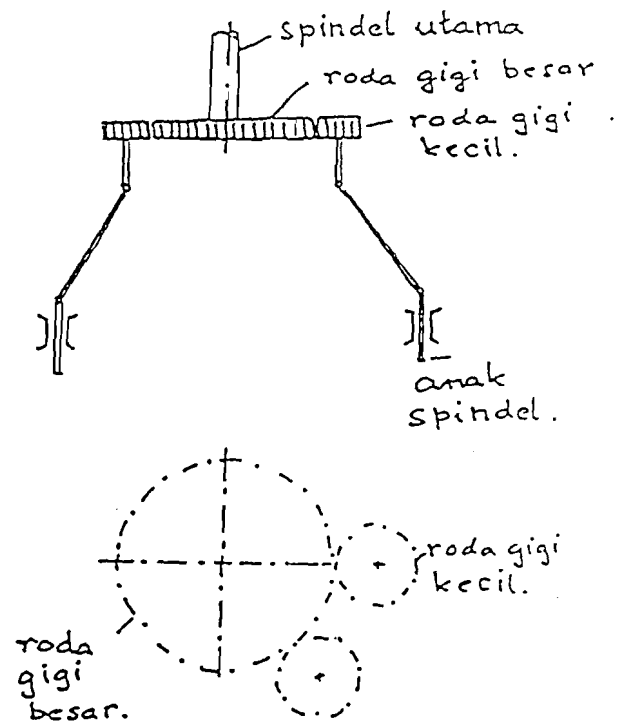 spindel utama
roda gigi besar
roda gigi
kecil.
anak
spindel.
roda gigi
kecil.
roda
gigi
besar.